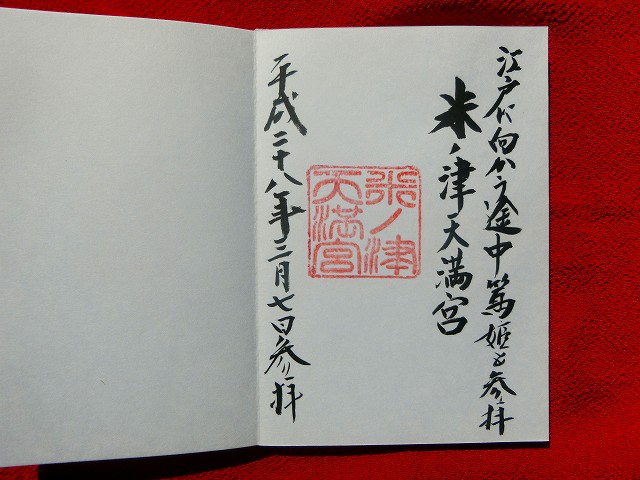 江戸に向かう途中篤姫も参拝
米ノ津天満宮
米ノ津
天満宮
平成二十八年三月七日参拝